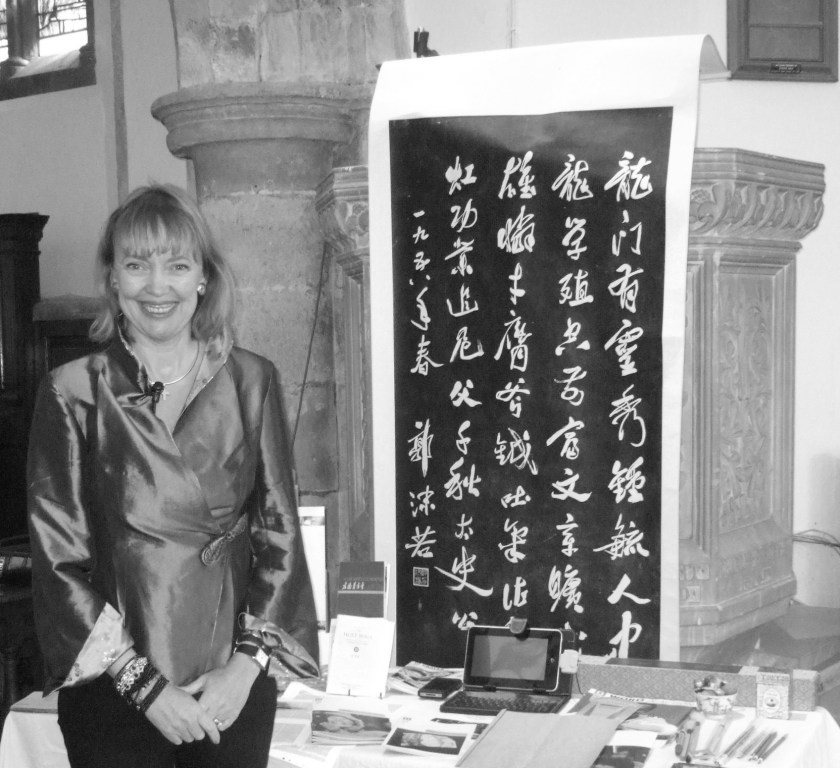 龍门有靈秀鍾毓人中
龍学殖空前富文章曠
雄憐才膺斧鉞吐氣作
虹功業追尼父千秋太史公
一九五八年春 郭沫若